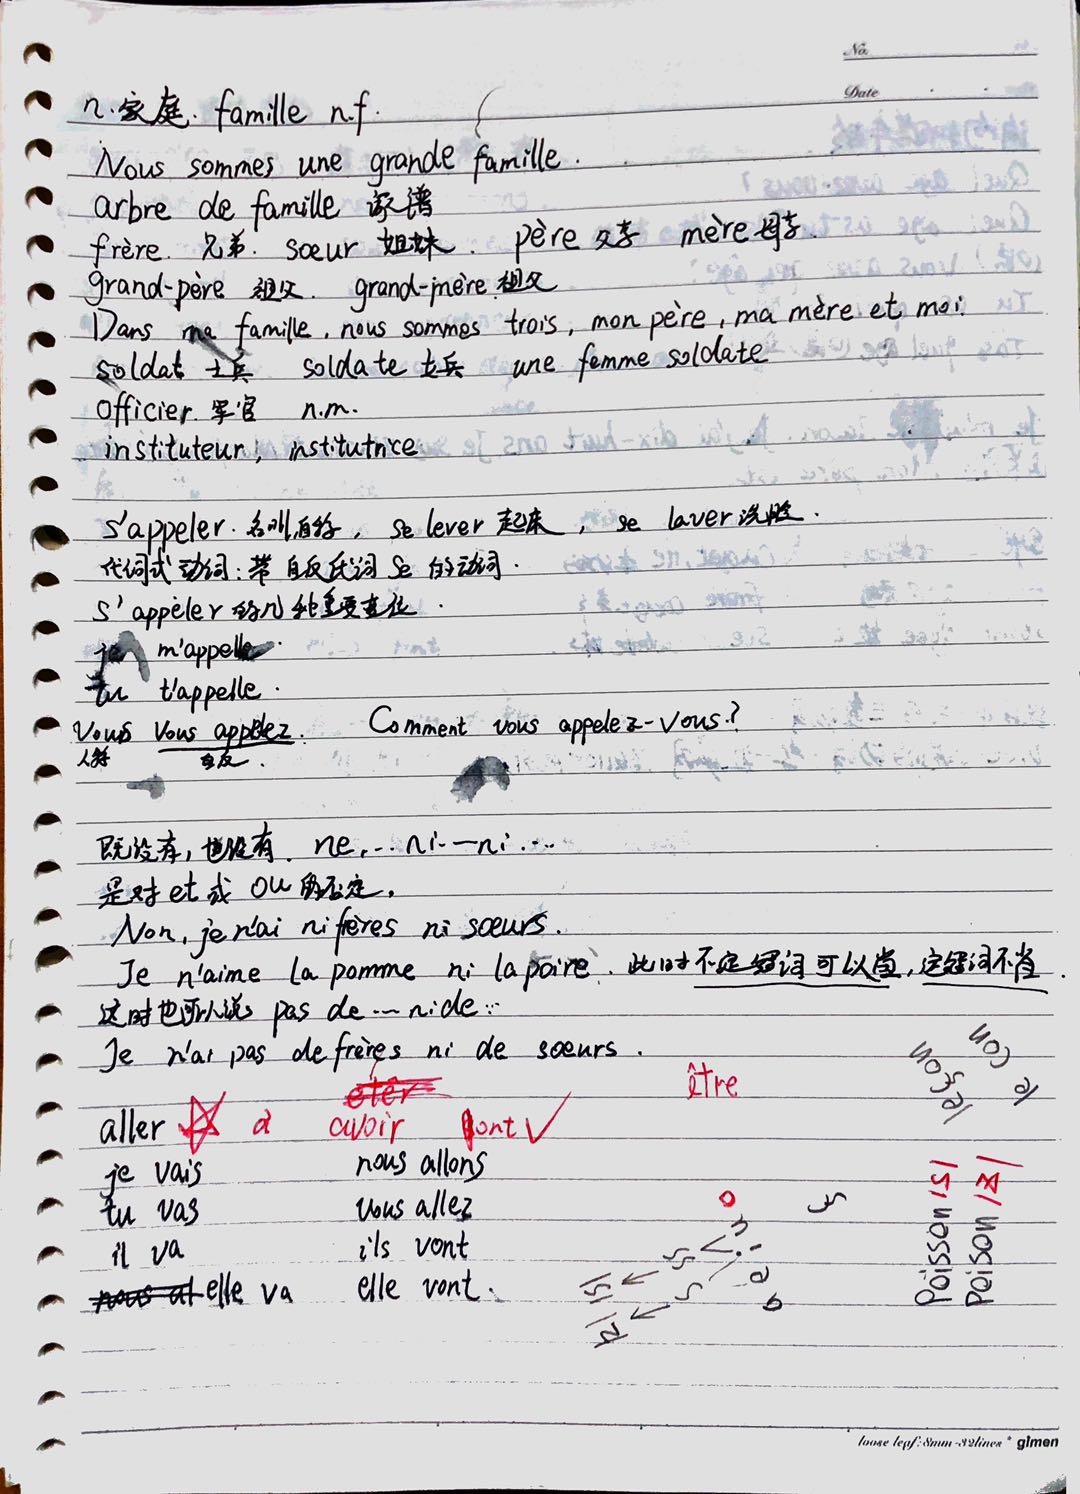 No.
Date
n. 家庭. famille n.f.
Nous sommes une grande famille.
arbre de famille 家谱
frère. 兄弟. sœur 姐妹. père 父亲 mère 母亲.
grand-père 祖父. grand-mère 祖父
Dans ma famille, nous sommes trois, mon père, ma mère et moi.
soldat 士兵 soldate 女兵 une femme soldate
officier 军官 n.m.
instituteur, institutrice
s'appeler. 名叫,自称, se lever 起床, se laver 洗脸.
代词式动词: 带自反代词 se 的动词.
s'appeler 的几种重要变位.
je m'appelle.
tu t'appelle.
vous vous appelez. Comment vous appelez-vous?
人称 自反.
既没有, 也没有. ne … ni … ni …
是对 et 或 ou 的否定.
Non, je n'ai ni frères ni sœurs.
Je n'aime la pomme ni la poire. 此时不定冠词可以省, 定冠词不省
这时也可以说 pas de … ni de …
Je n'ai pas de frères ni de sœurs.
être
aller à avoir font ✓
je vais nous allons
tu vas vous allez
il va ils vont
elle va elle vont.
le con
leçon
poisson /s/
poison /z/
/s/
/z/
loose leaf: 8mm-32lines * glmen